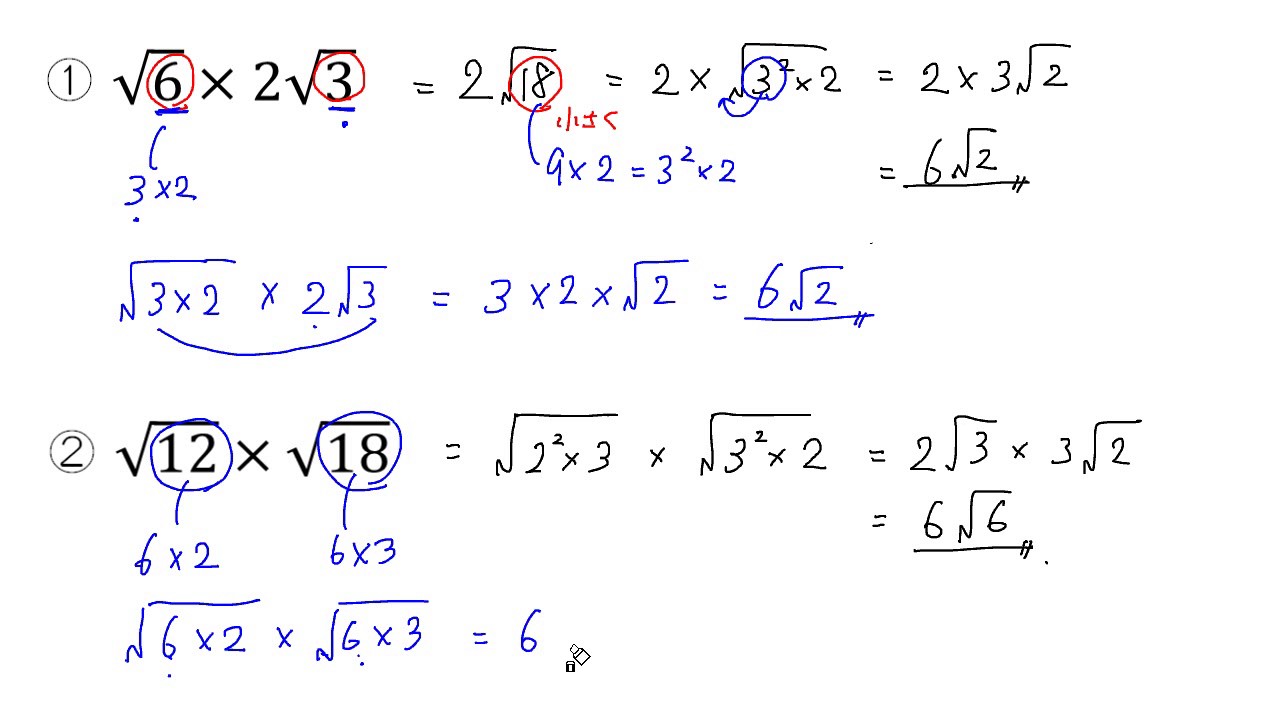 ① √6 × 2√3 = 2√18 = 2 × √3² × 2 = 2 × 3√2
小さく
3 × 2
9 × 2 = 3² × 2
= 6√2
√3 × 2 × 2√3 = 3 × 2 × √2 = 6√2
② √12 × √18 = √2² × 3 × √3² × 2 = 2√3 × 3√2
= 6√6
6 × 2
6 × 3
√6 × 2 × √6 × 3 = 6